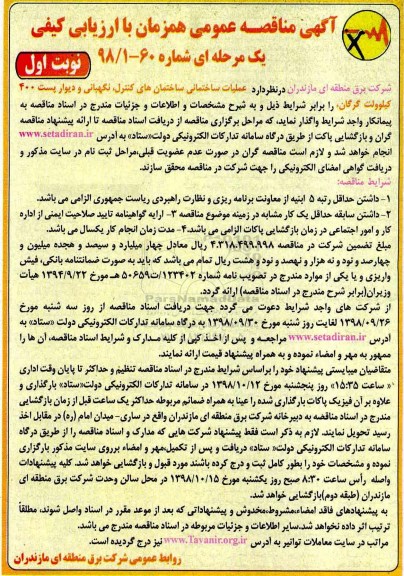 آگهی مناقصه عمومی همزمان با ارزیابی کیفی
یک مرحله ای شماره ۶۰-۹۸/۱
نوبت اول
شرکت برق منطقه ای مازندران درنظردارد عملیات ساختمانی ساختمان های کنترل، نگهبانی و دیوار پست ۴۰۰
کیلوولت گرگان، را برابر شرایط ذیل و به شرح مشخصات و اطلاعات و جزئیات مندرج در اسناد مناقصه به
پیمانکار واجد شرایط واگذار نمایند، که مراحل برگزاری مناقصه از دریافت اسناد مناقصه تا ارائه پیشنهاد مناقصه
گران و بازگشایی پاکت از طریق درگاه سامانه تدارکات الکترونیکی دولت«ستاد» به ادرس www.setadiran.ir
انجام خواهد شد و لازم است مناقصه گران در صورت عدم عضویت قبلی،مراحل ثبت نام در سایت مذکور و
دریافت گواهی امضای الکترونیکی را جهت شرکت در مناقصه محقق سازند.
شرایط مناقصه:
۱- داشتن حداقل رتبه ۵ ابنیه از معاونت برنامه ریزی و نظارت راهبردی ریاست جمهوری الزامی می باشد.
۲- داشتن سابقه حداقل یک کار مشابه در زمینه موضوع مناقصه ۳- ارایه گواهینامه تایید صلاحیت ایمنی از اداره
کار و امور اجتماعی در زمان بازگشایی پاکات الزامی می باشد.۴- مدت زمان انجام کار یکسال می باشد.
مبلغ تضمین شرکت در مناقصه ۴.۳۱۸.۴۹۹.۹۹۸ ریال معادل چهار میلیارد و سیصد و هجده میلیون و
چهارصد و نود و نه هزار و نهصد و نود و هشت ریال تمام می باشد که باید به صورت ضمانتنامه بانکی، فیش
واریزی و یا یکی از موارد مندرج در تصویب نامه شماره ۱۲۳۴۰۲/ت۵۰۶۵۹ هـ مورخ ۱۳۹۴/۹/۲۲ هیأت
وزیران(برابر شرح مندرج در اسناد مناقصه) ارائه گردد.
از شرکت های واجد شرایط دعوت می گردد جهت دریافت اسناد مناقصه از روز سه شنبه مورخ
۱۳۹۸/۰۹/۲۶ لغایت روز شنبه مورخ ۱۳۹۸/۰۹/۳۰ به درگاه سامانه تدارکات الکترونیکی دولت «ستاد» به
آدرس www.setadiran.ir مراجعه و پس از اخذ کپی از کلیه مدارک و شرایط اسناد مناقصه، آن ها را
ممهور به مهر و امضاء نموده و به همراه پیشنهاد قیمت ارائه نمایند.
متقاضیان میبایستی پیشنهاد خود را براساس شرایط مندرج در اسناد مناقصه تنظیم و حداکثر تا پایان وقت اداری
« ساعت ۱۵:۳۵» روز پنجشنبه مورخ ۱۳۹۸/۱۰/۱۲ در سامانه تدارکات الکترونیکی دولت«ستاد» بارگذاری و
علاوه بر آن فیزیک پاکات بارگذاری شده را عینا به همراه ضمائم مربوطه حداکثر یک ساعت قبل از زمان بازگشایی
مندرج در اسناد مناقصه به دبیرخانه شرکت برق منطقه ای مازندران واقع در ساری-میدان امام (ره) در مقابل اخذ
رسید تحویل نمایند. لازم به ذکر است فقط پیشنهاد شرکت هایی که مدارک و اسناد مناقصه را از طریق درگاه
سامانه تدارکات الکترونیکی دولت« ستاد» دریافت و پس از تکمیل،مهر و امضاء برروی سایت مذکور بارگزاری
نموده و مشخصات خود را بطور کامل ثبت و درج کرده باشند مورد قبول و بازگشایی خواهد شد. کلیه پیشنهادات
واصله رأس ساعت ۸:۳۰ صبح روز یکشنبه مورخ ۱۳۹۸/۱۰/۱۵ در محل سالن وحدت شرکت برق منطقه ای
مازندران (طبقه دوم)بازگشایی خواهد شد.
به پیشنهادهای فاقد امضاء،مشروط،مخدوش و پیشنهاداتی که بعد از موعد مقرر در اسناد واصل شوند، مطلقاً
ترتیب اثر داده نخواهد شد.سایر اطلاعات و جزئیات مربوطه در اسناد مناقصه مندرج می باشد.
مراتب در سایت معاملات توانیر به آدرس www.Tavanir.org.ir نیز درج گردیده است.
روابط عمومی شرکت برق منطقه ای مازندران